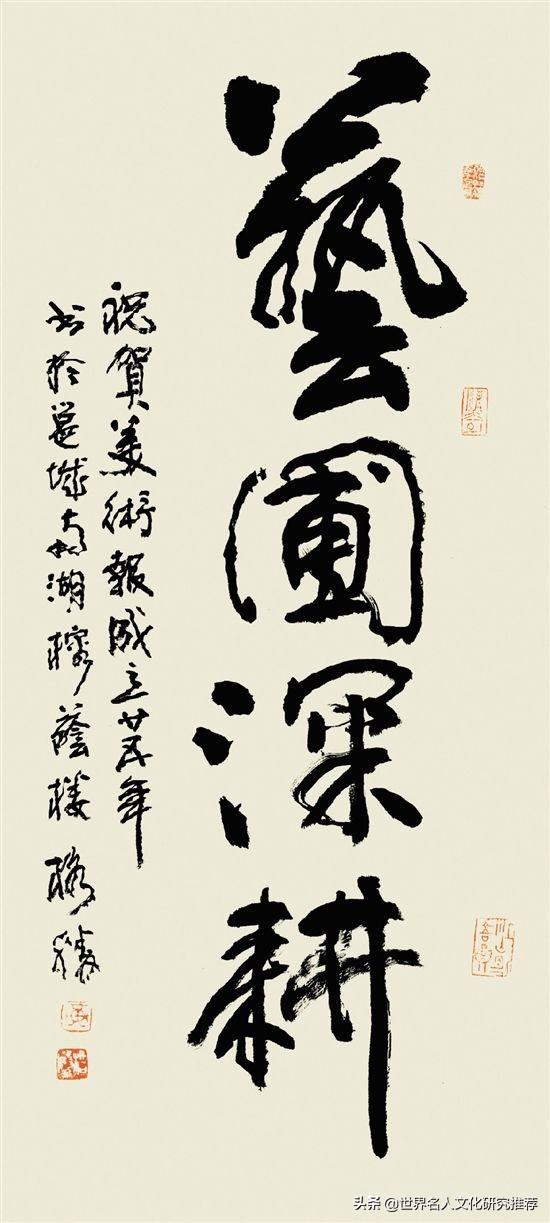 藝圃深耕
祝賀美術報成立廿五年
书於邕城南湖榕蔭楼
头条 @世界名人文化研究推荐